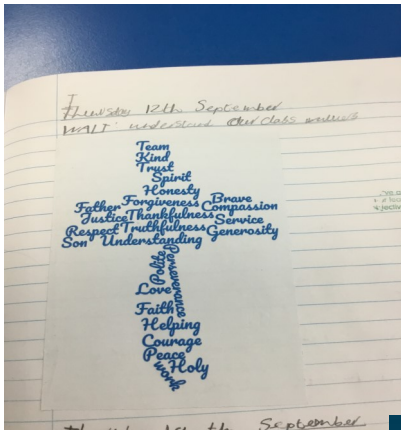 Thursday 12th September
WALT: understand our class
Team
Kind
Trust
Spirit
Honesty
Forgiveness Brave
Father Compassion
Justice Thankfulness Service
Respect Truthfulness Generosity
Son Understanding
Polite Perseverance
Love
Faith
Helping
Courage
Peace
work Holy
September